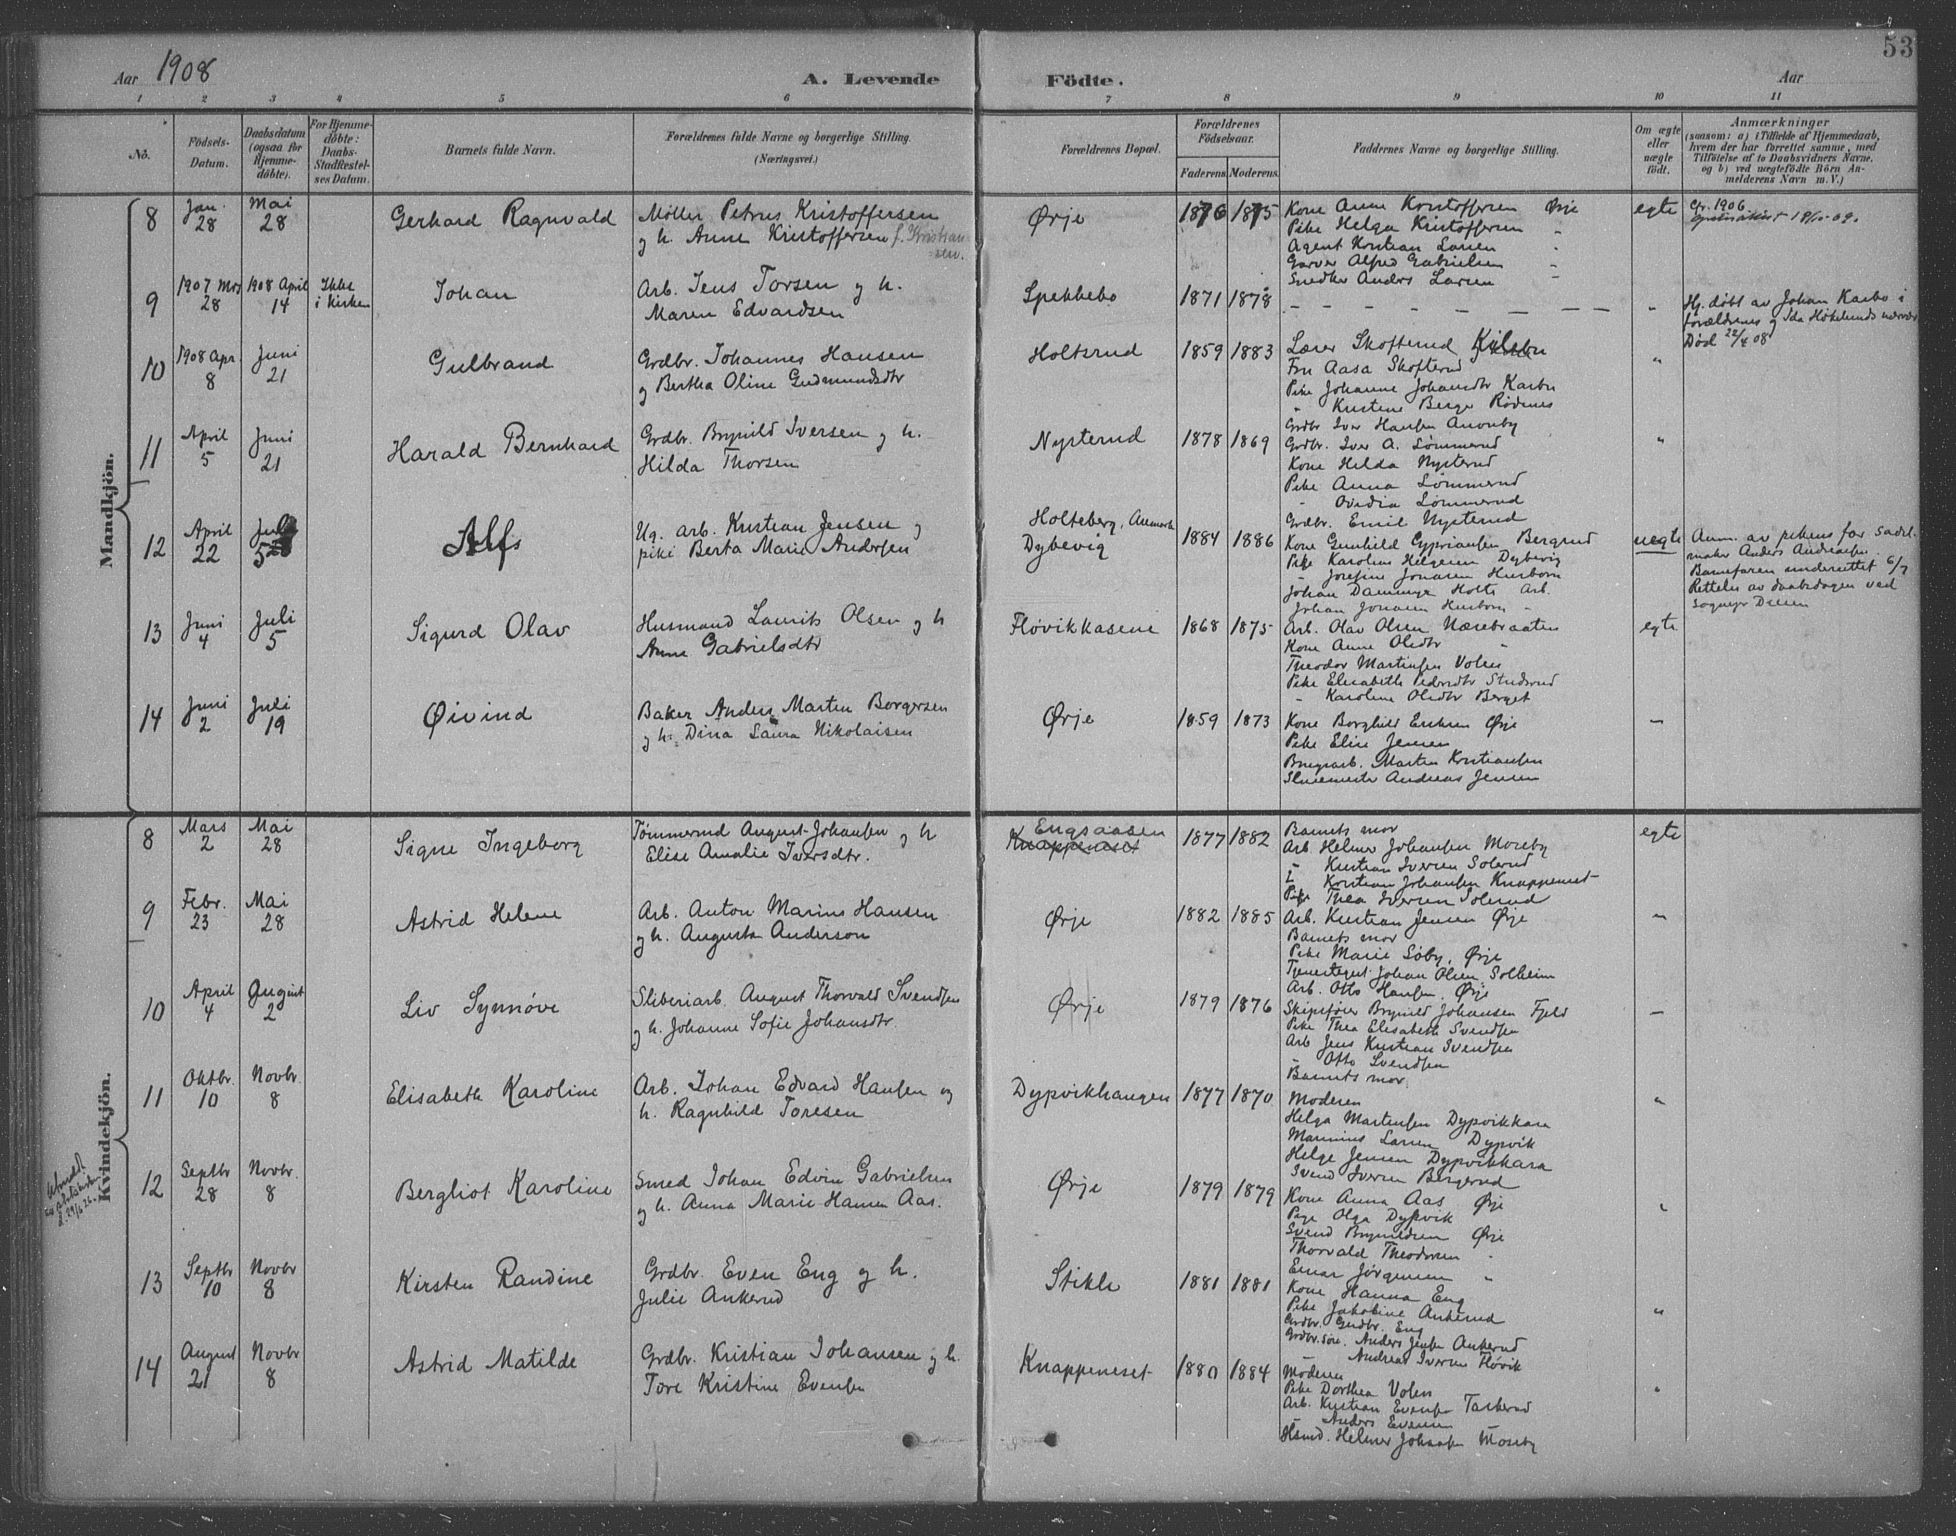 53
Aar 1908
A. Levende
Födte.
Aar
1 2 3 4 5 6 7 8 9 10 11
No.
Födsels-
Datum.
Daabsdatum
(ogsaa for
Hjemme-
döbte).
For Hjemme-
döbte:
Daabs-
Stadfæstel-
ses Datum.
Barnets fulde Navn.
Forældrenes fulde Navne og borgerlige Stilling.
(Næringsvei.)
Forældrenes Bopæl.
Forældrenes
Födselsaar.
Faderens Moderens.
Faddernes Navne og borgerlige Stilling.
Om ægte
eller
uægte
födt.
Anmærkninger
(saasom: a) i Tilfælde af Hjemmedaab,
hvem der har forrettet samme, med
Tilföielse af to Daabsvidners Navne,
og b) ved uægtefödte Börn An-
melderens Navn m. V.)
Mandkjön.
8
Jan.
28
Mai
28
Gerhard Ragnvald
Møller Petrus Kristoffersen
og h. Anne Kristoffersen f. Kristian
sen.
Ørje
1876 1875
Kone Anne Kristoffersen Ørje
Pike Helga Kristoffersen "
Agent Kristian Larsen "
Garver Alfred Gabrielsen "
Snedker Anders Larsen
egte
cfr. 1906
9
1907 Mrs
28
1908 April
14
Ikke
i kirken
Johan
Arb. Jens Torsen og h.
Maren Edvardsen
Spekkebo
1871 1878
— — — — — — — —
"
Hj. døbt av Johan Karbo i
forældrenes og Ida Høkelunds nærvær
Død 22/4 08
10
1908 Apr.
8
Juni
21
Gulbrand
Grdbr. Johannes Hansen
og Bertha Oline Gudmundsdtr
Holtsrud
1859 1883
Lærer Skofterud
Fru Aasa Skofterud
Pike Johanne Johansdtr Karbu
" Kristine Berger Rødenes
"
11
April
5
Juni
21
Harald Bernhard
Grdbr. Brynild Iversen og h.
Hilda Thorsen
Nysterud
1878 1869
Grdbr Iver Hansen
Grdbr. Iver A. Lømmerud
Kone Hilda Nysterud
Pike Anna Lømmerud
- Ovidia Lømmerud
Grdbr. Emil Nysterud
"
12
April
22
Juli
5
Alf
Ug. arb. Kristian Jensen og
pike Berta Marie Andersen
Holteberg, Aremark
Dybevig
1884 1886
Kone Gunhild Cyprianssen Bergerud
Pike Karoline Helgesen Dybevig
- Josefine Jonasen
Johan Holte Arb.
Johan Jonasen
uegte
Anm. av pikens far Sadel-
maker Anders Andreasen.
Barnefaren underrettet 6/7
Rettelse av daabsdagen ved
sogneprest
13
Juni
4
Juli
5
Sigurd Olav
Husmand Laurits Olsen og h
Anne Gabrielsdtr
Fløvikkasene
1868 1875
Arb. Olav Olsen Næsebraaten
Kone Anne Olsdtr "
Theodor Martinsen Volen
Pike Elisabeth Pedersdtr Stensrud
- Karoline Olsdtr Berget
egte
14
Juni
2
Juli
19
Øivind
Baker Anders Martin Borgersen
og h. Dina Laura Nikolaisen
Ørje
1859 1873
Kone Borghild Eriksen Ørje
Pike Elise Jensen
Brugsarb. Martin Kristiansen
Slusemester Andreas Jensen
—
Kvindekjön.
8
Mars
2
Mai
28
Signe Ingeborg
Tømmermd August Johansen og h
Elise Amalie Iversdtr.
Engsaasen
Knappeneset
1877 1882
Barnets mor
Arb. Helmer Johansen Moseby
" Kristian Iversen Solerud
" Kristian Johansen Knappeneset
Pike Thea Iversen Solerud
egte
9
Febr.
23
Mai
28
Astrid Helene
Arb. Anton Marius Hansen
og h. Augusta Anderson
Ørje
1882 1885
Arb. Kristian Jensen Ørje
Barnets mor
Pike Marie Søby, Ørje
Tjenestegut Johan Olsen Solheim
Arb. Otto Hansen, Ørje
"
10
April
4
August
2
Liv Synnøve
Sliberiarb. August Thorvald Svendsen
og h. Johanne Sofie Johansdtr
Ørje
1879 1876
Skipsfører Brynild Johansen Fjeld
Pike Thea Elisabeth Svendsen
Arb Jens Kristian Svendsen
- Otto Svendsen
Barnets mor
—
11
Oktbr.
10
Novbr.
8
Elisabeth Karoline
Arb. Johan Edvard Hansen og
h. Ragnhild Toresen
Dypvikhaugen
1877 1870
Moderen
Helga Martinsen Dypvikkasa
Marinius Larsen Dypvik
Helge Jensen Dypvikkasa
Svend Iversen Bergerud
"
12
Septbr
28
Novbr.
8
Bergliot Karoline
Smed Johan Edvin Gabrielsen
og h. Anna Marie Hansen Aas.
Ørje
1879 1879
Kone Anna Aas Ørje
Pige Olga Dypvik
Svend Brynildsen Ørje
Thorvald Theodorsen "
Einar Jørgensen "
"
13
Septbr
10
Novbr
8
Kirsten Randine
Grdbr. Even Eng og h.
Julie Ankerud
Stikle
1881 1881
Kone Hanna Eng
Pike Jakobine Ankerud
Grdbr. Gudbr. Eng
Grdbr.søn. Anders Jensen Ankerud
- Andreas Iversen Fløvik
"
14
August
21
Novbr
8
Astrid Matilde
Grdbr. Kristian Johansen og h.
Tore Kristine Evensen
Knappeneset
1880 1884
Moderen
Pike Dorthea Volen
Arb. Kristian Evensen Taskerud
- Anders Evensen
Husmd. Helmer Johansen Moseby
"